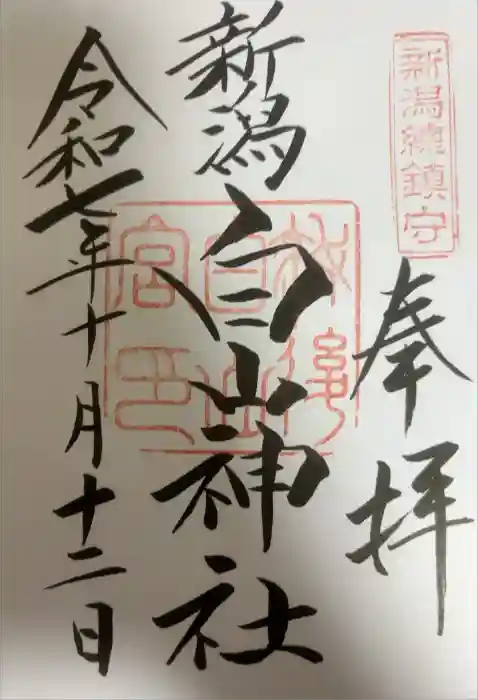 新潟總鎮守
奉拝
新潟
白山神社
越後
白山
宮印
令和七年十月十二日